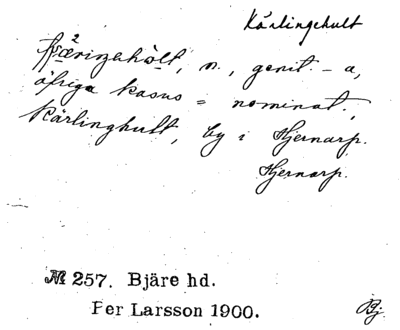 Kärlingehult
kæringahòlt, n., genit. -a,
öfriga kasus = nominat.,
Kärlinghult, by i Hjernarp.
Hjernarp.
№ 257. Bjäre hd.
Per Larsson 1900.
Bj.